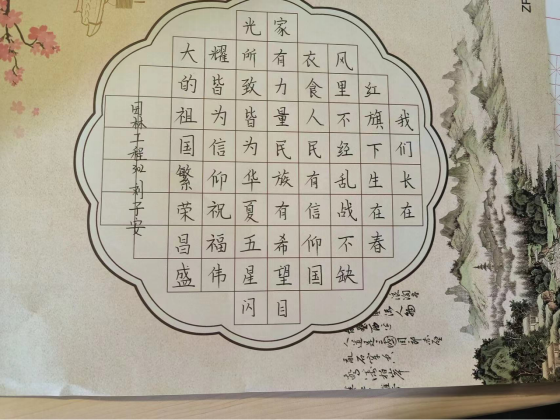 我们长在
红旗下生在春
风里不经乱战不缺
衣食人民有信仰国
家有力量民族有希望目
光所致皆为华夏五星闪
耀皆为信仰祝福伟
大的祖国繁荣昌盛
园林工程班 刘子安